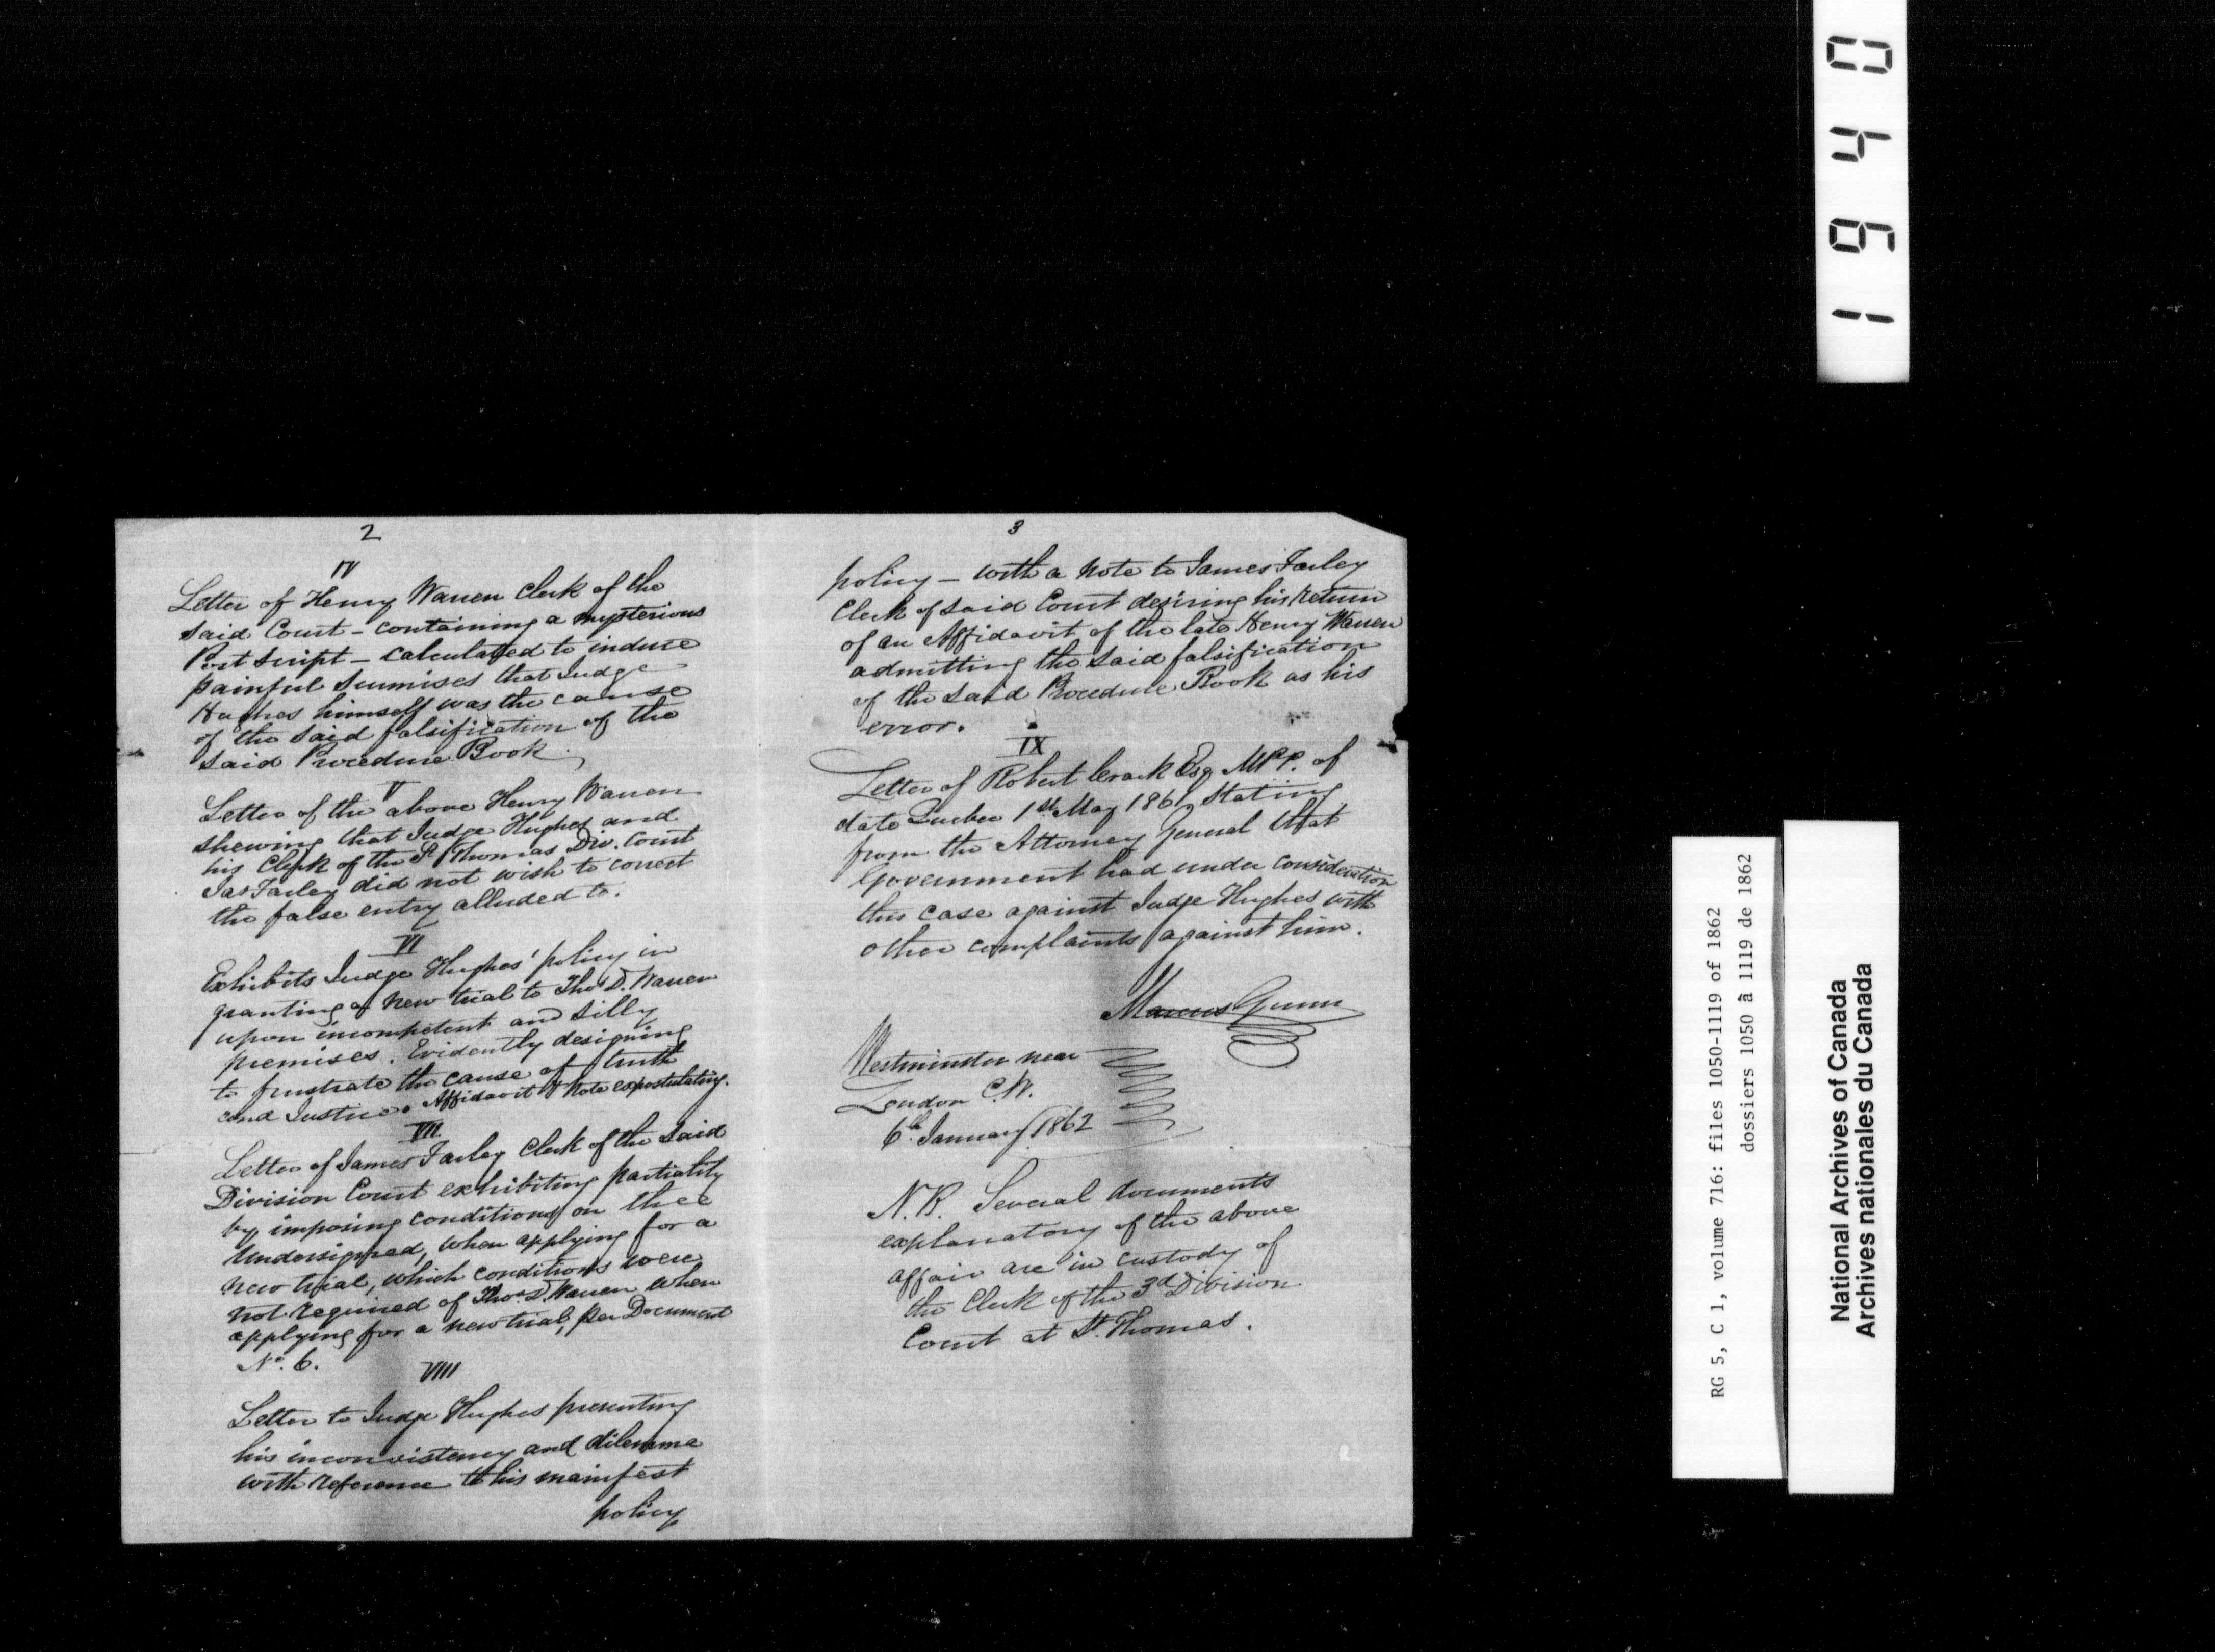 2
IV
Letter of Henry Warren Clerk of the
said Court - containing a mysterious
Post Script - calculated to induce
painful surmises that Judge
Hughes himself was the cause
of the said falsification of the
said Procedure Book.
V
Letter of the above Henry Warren
shewing that Judge Hughes and
his Clerk of the St Thomas Div. Court
Jas Farley did not wish to correct
the false entry alluded to.
VI
Exhibits Judge Hughes' policy in
granting a new trial to Thos D. Warren
upon incompetent and silly
premises. Evidently designing
to frustrate the cause of truth
and Justice. Affidavit & Note expostulating.
VII
Letter of James Farley Clerk of the said
Division Court exhibiting partiality
by imposing conditions on thee
Undersigned, when applying for a
new trial, which conditions were
not required of Thos D. Warren when
applying for a new trial, per Document
No. 6.
VIII
Letter to Judge Hughes presenting
his inconsistency and dilemma
with reference to his mainfest
policy
3
policy - with a note to James Farley
Clerk of said Court desiring his return
of an Affidavit of the late Henry Warren
admitting the said falsification
of the said Procedure Book as his
error.
IX
Letter of Robert Esq MPP. of
date Quebec 1st May 1861 Stating
from the Attorney General that
Government had under consideration
this case against Judge Hughes with
other complaints against him.
Marcus Gunn
Westminster near
London C.W.
6th January 1862
N.B. Several documents
explanatory of the above
affair are in custody of
the Clerk of the 3d Division
Court at St. Thomas.
1940
RG 5, C 1, volume 716: files 1050-1119 of 1862
dossiers 1050 à 1119 de 1862
National Archives of Canada
Archives nationales du Canada